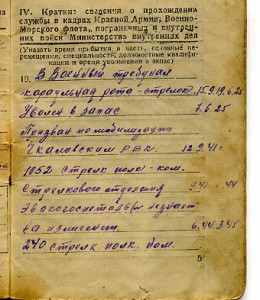 IV. Краткие сведения о прохождении
службы в кадрах Красной Армии, Военно-
Морского флота, пограничных и внутрен-
них войск Министерства внутренних дел
(Указать время прибытия в часть, основные пере-
мещения, специальность, должностные квалифи-
кации и время увольнения в запас)
19. В Военный трибунал
караульная рота - стрелок 15.9.19 6.25
Уволен в запас 6.25
Призван по мобилизации
Чкаловским РВК. 12.9.41
1052 стрелк полк - ком.
Стрелкового отделения 9.41 44
Эвакогоспиталь
на излечении. 6.44 3.45
240 стрелк. полк.
5